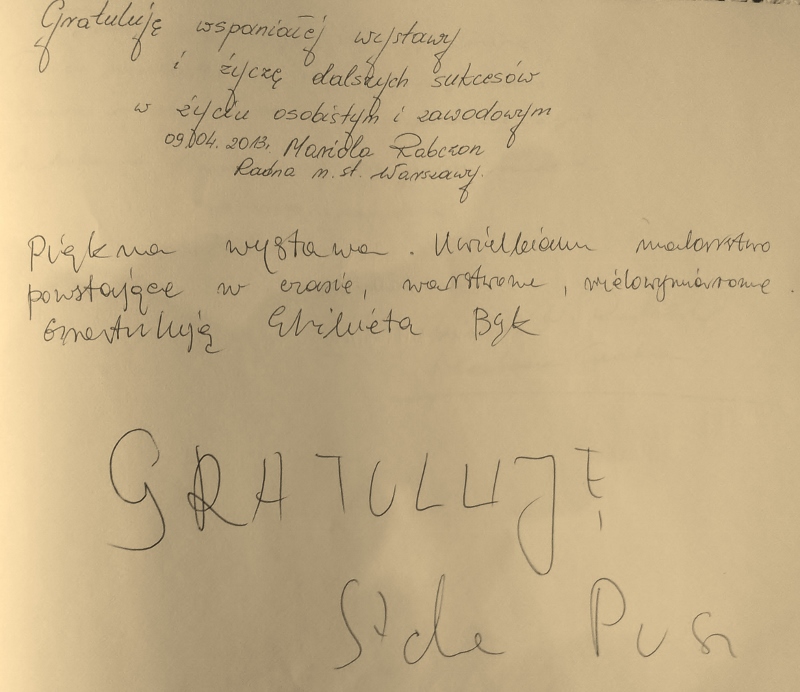 Gratuluję wspaniałej wystawy
i życzę dalszych sukcesów
w życiu osobistym i zawodowym
09.04.2013. Mariola Rabczon
Radna m.st. Warszawy.
Piękna wystawa. Uwielbiam malarstwo
powstające w czasie, warstwowe, wielowymiarowe.
Gratuluję Elżbieta Bąk
GRATULUJĘ